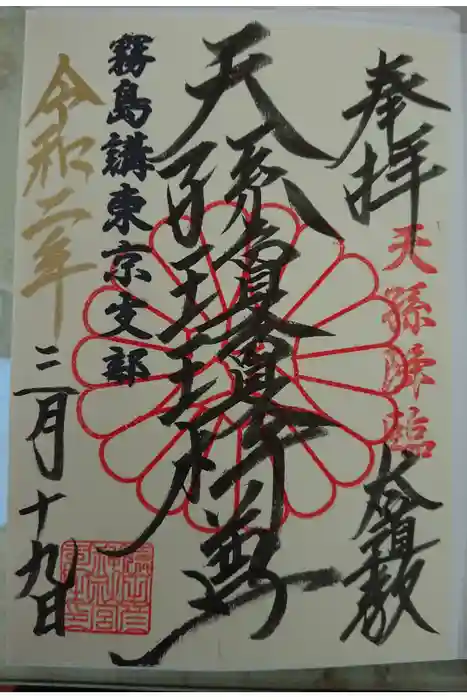 奉拝
天孫降臨
天孫瓊瓊杵尊
霧島講東京支部
令和二年
三月十九日